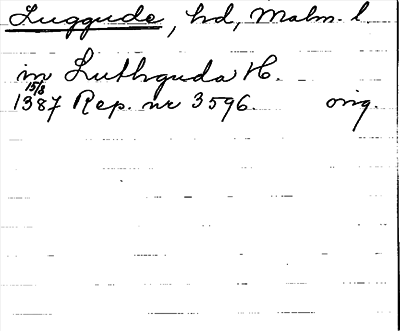 Luggude, hd, Malm. l.
in Luthguda H.
15/8
1387 Rep. nr 3596. orig.